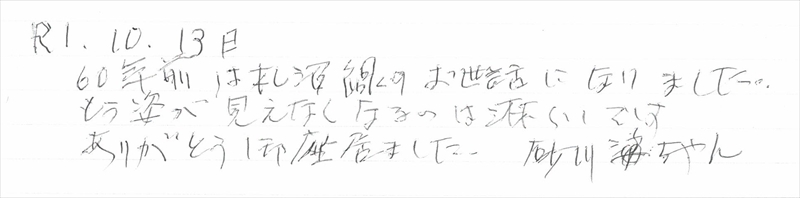 R1.10.13日
60年前は札沼線のお世話になりました。
もう姿が見えなくなるのは淋しいです
ありがとう御座居ました 砂川 ちゃん